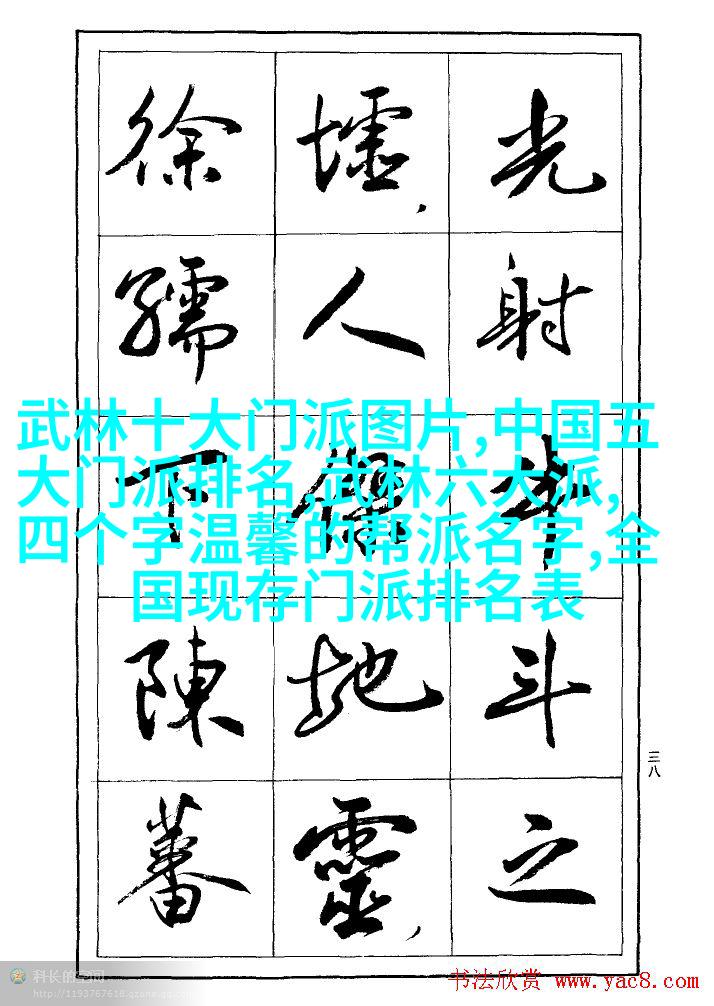 光射牛斗之
墟,人傑地靈,
徐孺下陳蕃
武林十大门派图片,中国五
大门派排名,武林六大派,
四个字温馨的帮派名字,全
国现存门派排名表
三八
科长的空间
http://1193767618.qzone.qq.com
书法欣赏 www.yac8.com